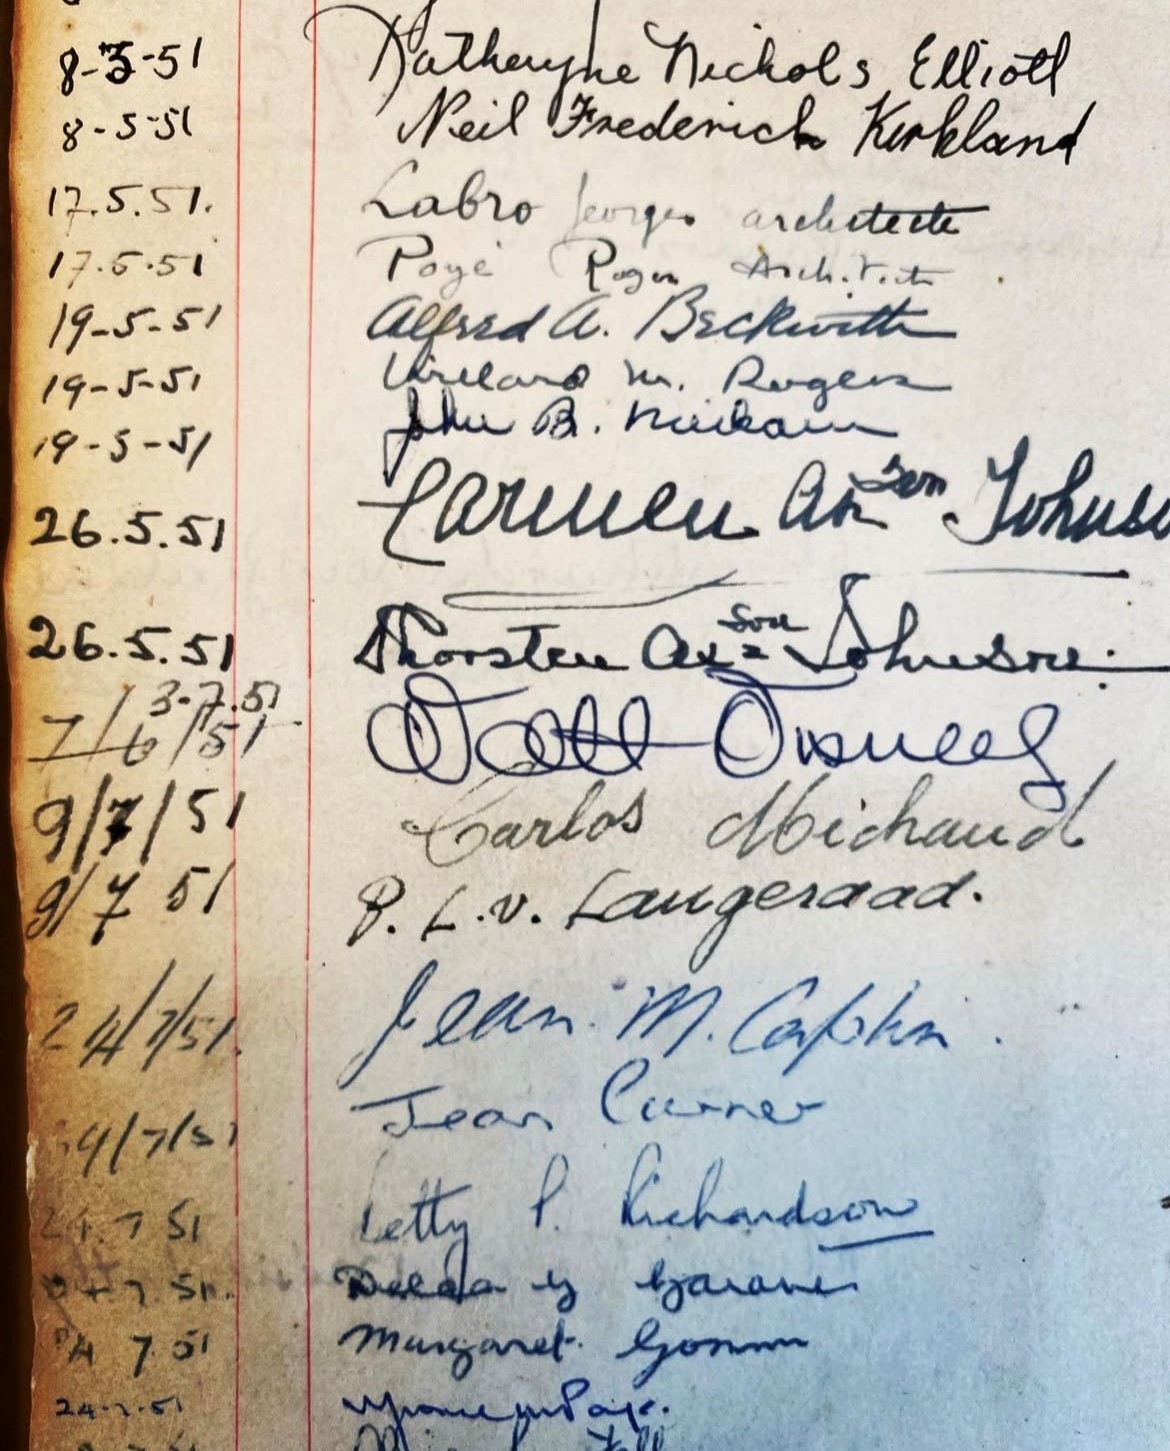 8-5-51 Katheryne Nichols Elliott
8-5-51 Neil Frederick Kirkland
17.5.51. Labro Georges architecte
17.5.51 Poyé Roger Architecte
19-5-51 Alfred A. Beckwith
19-5-51 Willard M. Rogers
19-5-51 John B.
26.5.51 Carmen son Johnso
26.5.51 Thorsten son Johnson.
3.7.51
7/6/51
9/7/51 Carlos Michaud
9/7 51 P. L. v. Langeraad.
24/7/51. Jean M.
24/7/51 Jean
24.7 51 Letty P. Richardson
24 7.51.
24 7 51 Margaret
24.7.51